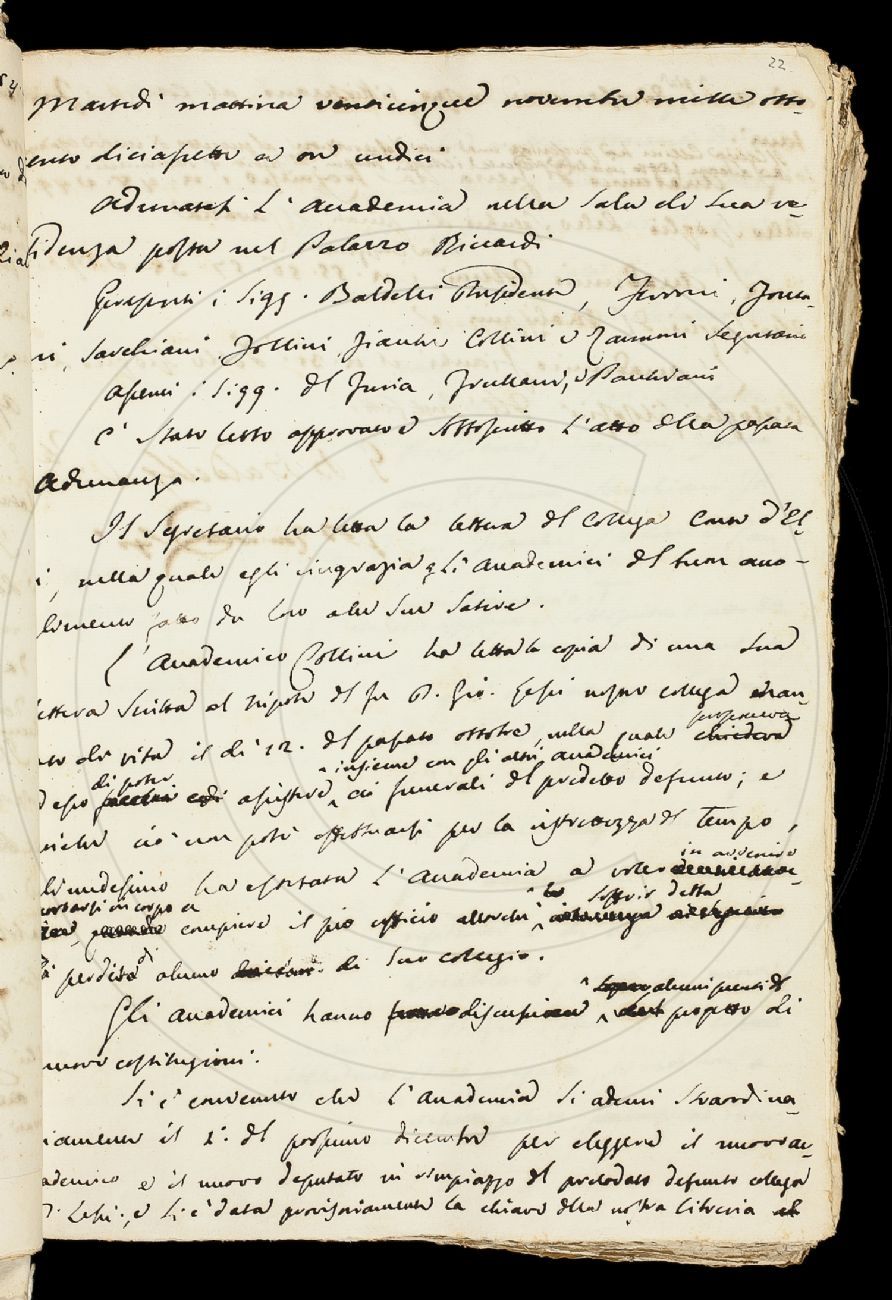 22
Martedì mattina venticinque novembre mille otto-
cento diciasette a ore undici
Adunatasi L'Accademia nella Sala di Sua re-
sidenza posta nel Palazzo Riccardi
Presenti i Sigg. Baldelli Presidente, Ferroni, Fonta-
ni, Sarchiani Follini Collini e Zannoni Segretario
Assenti i Sigg. del Furia, Frullani, e
E' stato letto approvato e sottoscritto L'atto della passata
Adunanza.
Il Segretario ha letta la lettera del Collega Conte d'El-
ci, nella quale egli ringrazia gli Accademici del buon acco-
glimento fatto da loro alle Sue Satire.
L'Accademico Collini ha letta la copia di una Sua
lettera scritta al nipote del fu P. Gio. Lessi nostro collega man-
cato di vita il dì 12. del passato ottobre, nella quale chiedeva
insieme con gli altri Accademici
di poter
assistere ai funerali del predetto defunto; e
ciò non potè effettuarsi per la ristrettezza di Tempo,
in avvenire
il medesimo ha esortata L'Accademia a voler
in corpo a
compiere il pio officio allorchè soffrir detta
perdita di alcuno di Suo collegio.
Gli Accademici hanno alcuni punti del progetto di
nuove costituzioni.
Si è convenuto che L'Accademia Si aduni Straordina-
riamente il 2.º del prossimo dicembre per eleggere il nuovo ac-
cademico e il nuovo deputato in rimpiazzo del prelodato defunto collega
Lessi, e Si è data provvisoriamente la chiave della nostra Libreria al